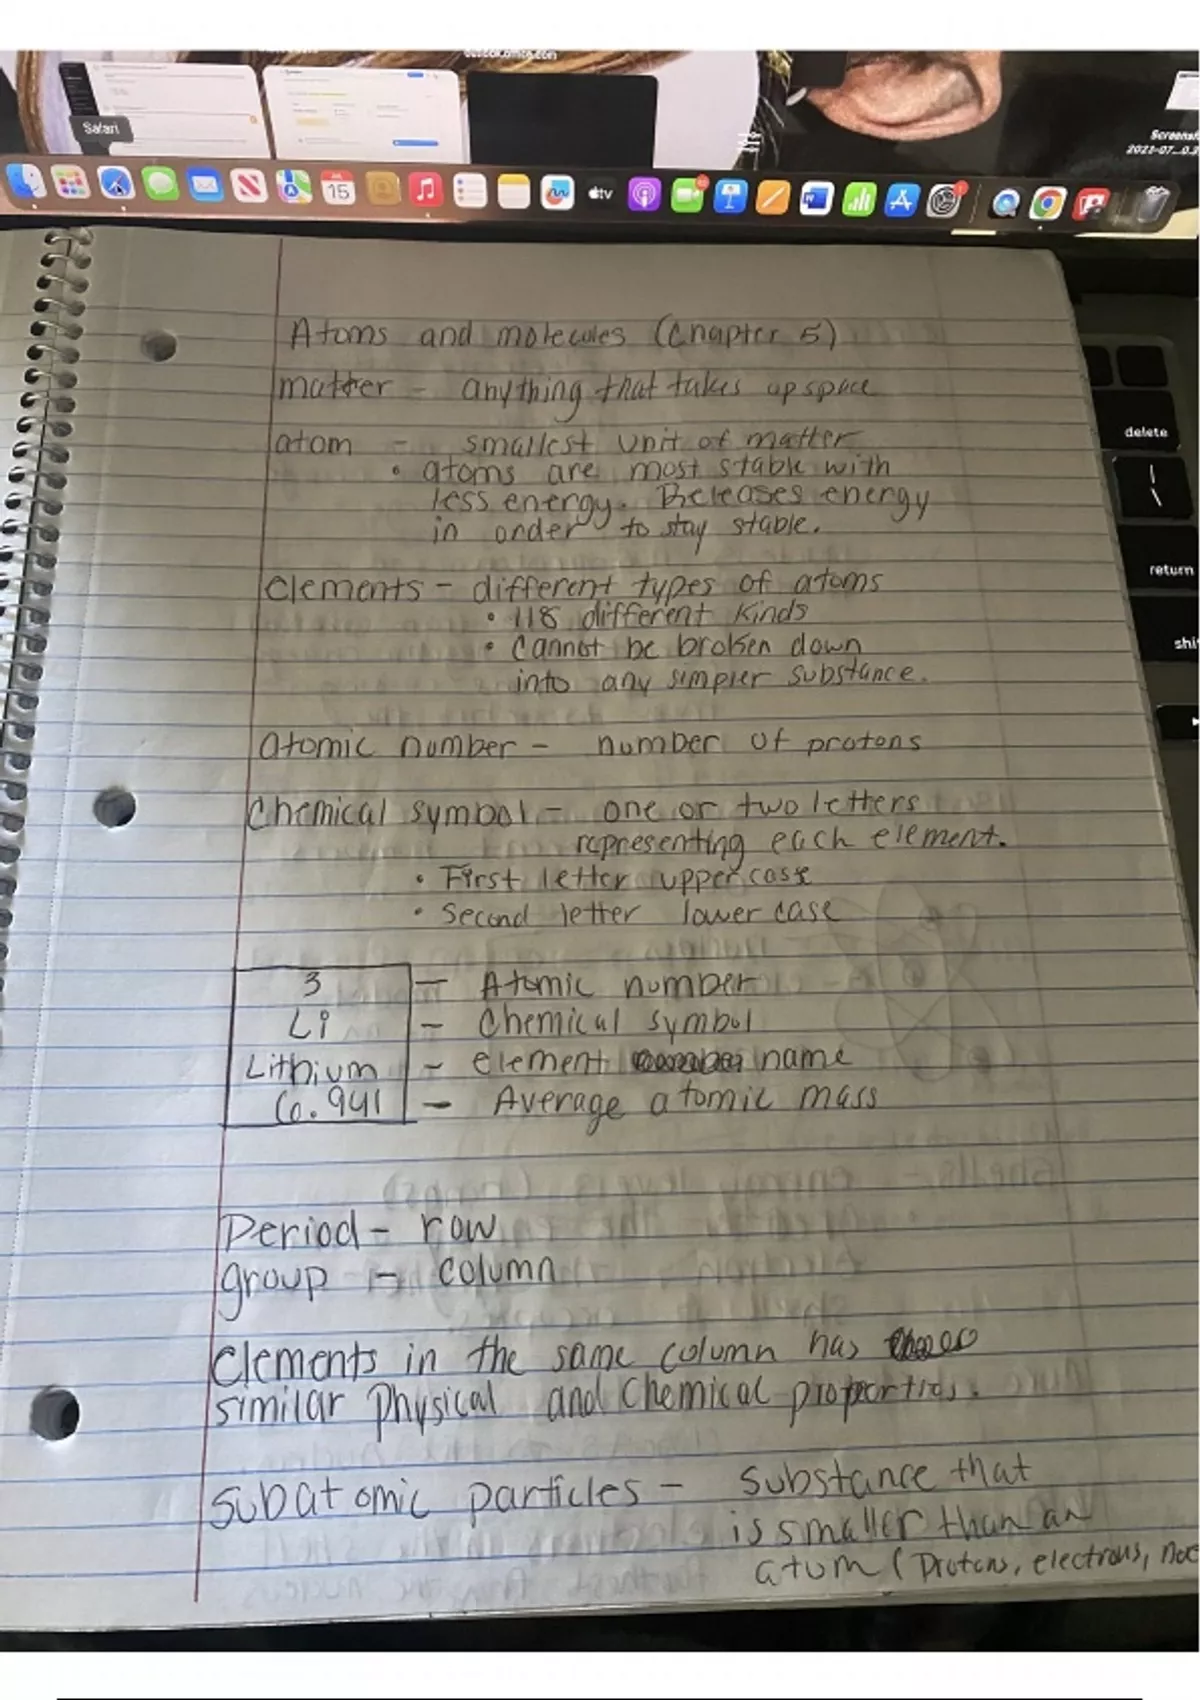 outlook.office.com
Safari
Screensh
2021-07...0.3
JUL
15
tv
Atoms and molecules (Chapter 5)
matter - anything that takes up space
atom - smallest unit of matter
• atoms are most stable with
less energy. Releases energy
in order to stay stable.
Elements - different types of atoms
• 118 different kinds
• Cannot be broken down
into any simpler substance.
atomic number - number of protons
Chemical symbol - one or two letters
representing each element.
• First letter uppercase
• Second letter lower case
3 - Atomic number
Li - Chemical symbol
Lithium - element name
6.941 - Average atomic mass
Period - row
group - column
Elements in the same column has
similar Physical and Chemical properties.
Subatomic particles - substance that
is smaller than an
atom (Protons, electrons, neu
delete
|
\
return
shi